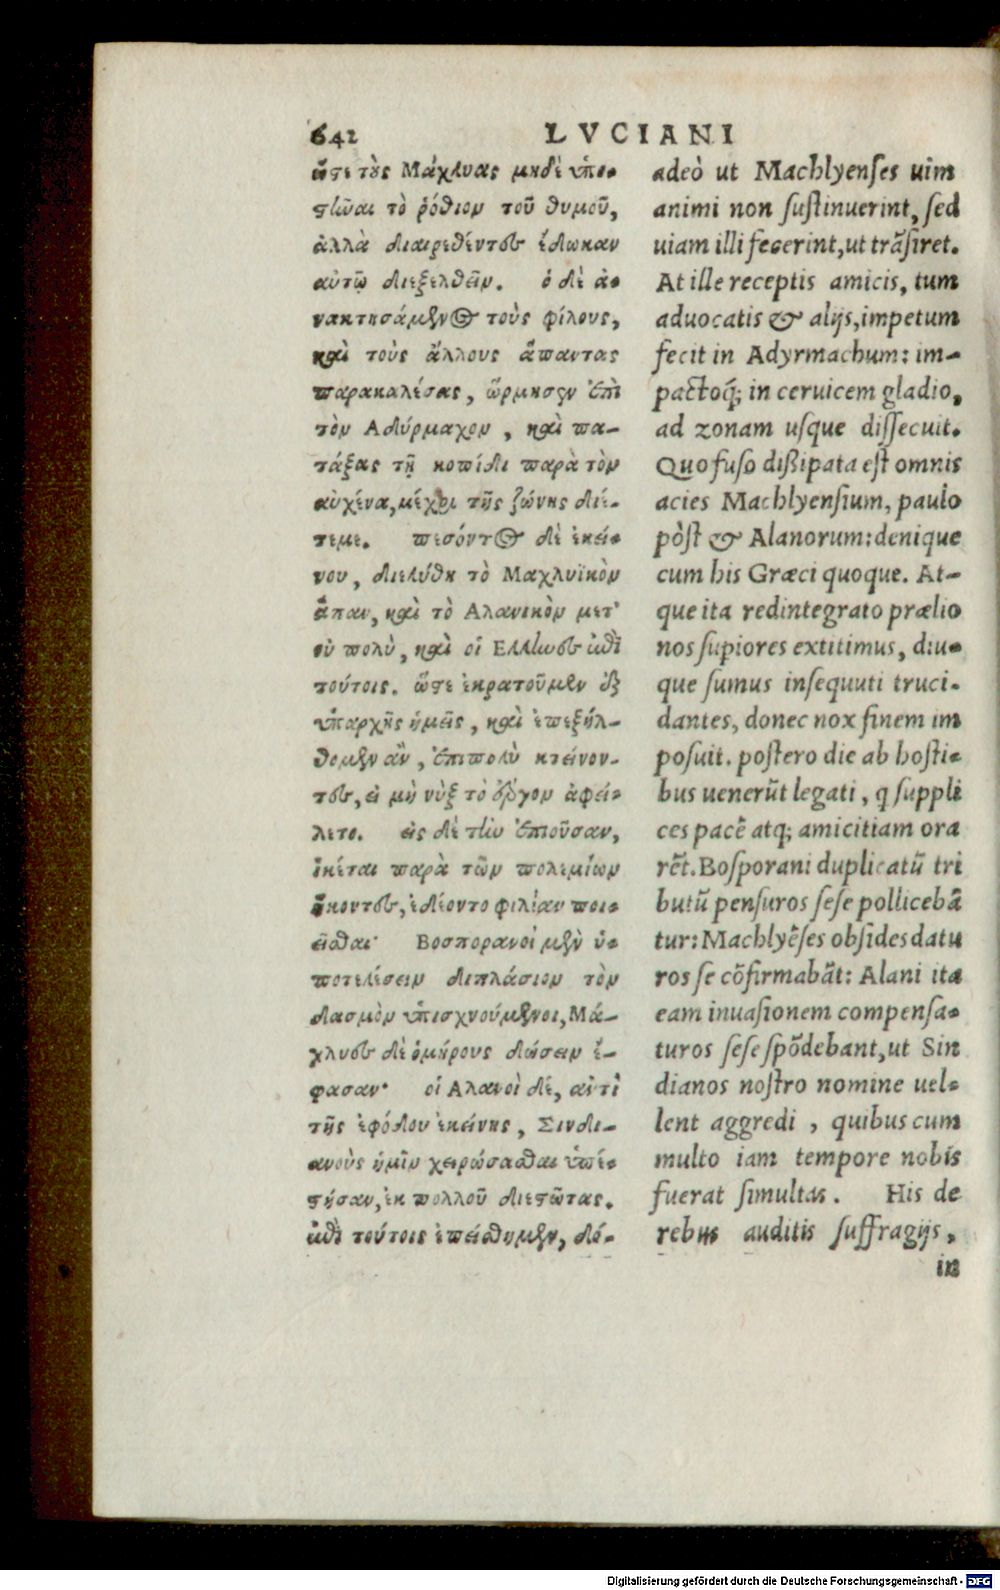 642 LVCIANI
ὥστε τοὺς Μάχλυας μηδὲ ὑπο-
στῆναι τὸ ῥόθιον τοῦ θυμοῦ,
ἀλλὰ διαιρεθέντες ἔδωκαν
αὐτῷ διεξελθεῖν. ὁ δὲ ἀ-
νακτησάμενος τοὺς φίλους,
καὶ τοὺς ἄλλους ἅπαντας
παρακαλέσας, ὥρμησεν ἐπὶ
τὸν Αδύρμαχον, καὶ πα-
τάξας τῇ κοπίδι παρὰ τὸν
αὐχένα, μέχρι τῆς ζώνης διέ-
τεμε. πεσόντος δὲ ἐκεί-
νου, διελύθη τὸ Μαχλυϊκὸν
ἅπαν, καὶ τὸ Αλανικὸν μετ'
οὐ πολὺ, καὶ οἱ Ελληνες ἐπὶ
τούτοις. ὥστε ἐκρατοῦμεν ἐξ
ὑπαρχῆς ἡμεῖς, καὶ ἐπεξήλ-
θομεν ἂν, ἐπιπολὺ κτείνον-
τες, εἰ μὴ νὺξ τὸ ἔργον ἀφεί-
λετο. εἰς δὲ τὴν ἐπιοῦσαν,
ἱκέται παρὰ τῶν πολεμίων
ἥκοντες, ἐδέοντο φιλίαν ποιε-
εῖσθαι· Βοσπορανοὶ μὲν ὑ-
ποτελέσειν διπλάσιον τὸν
δασμὸν ὑπισχνούμενοι, Μά-
χλυες δὲ ὁμήρους δώσειν ἔ-
φασαν· οἱ Αλανοὶ δέ, ἀντὶ
τῆς ἐφόδου ἐκείνης, Σινδι-
ανοὺς ἡμῖν χειρώσασθαι ὑπέ-
στησαν, ἐκ πολλοῦ διεστῶτας.
ἐπὶ τούτοις ἐπείσθημεν, δό-
adeò ut Machlyenses uim
animi non sustinuerint, sed
uiam illi fecerint, ut trāsiret.
At ille receptis amicis, tum
aduocatis & alijs, impetum
fecit in Adyrmachum: im-
pactoq́; in ceruicem gladio,
ad zonam usque dissecuit.
Quo fuso dißipata est omnis
acies Machlyensium, paulo
pòst & Alanorum: denique
cum his Græci quoque. At-
que ita redintegrato prælio
nos supiores extitimus, diu-
que sumus insequuti truci-
dantes, donec nox finem im
posuit. postero die ab hosti-
bus uenerūt legati, q suppli
ces pacē atq; amicitiam ora
rēt. Bosporani duplicatū tri
butū pensuros sese pollicebā
tur: Machlyēses obsides datu
ros se cōfirmabāt: Alani ita
eam inuasionem compensa-
turos sese spōdebant, ut Sin
dianos nostro nomine uel-
lent aggredi, quibus cum
multo iam tempore nobis
fuerat simultas. His de
rebus auditis suffragijs,
in
Digitalisierung gefördert durch die Deutsche Forschungsgemeinschaft - DFG